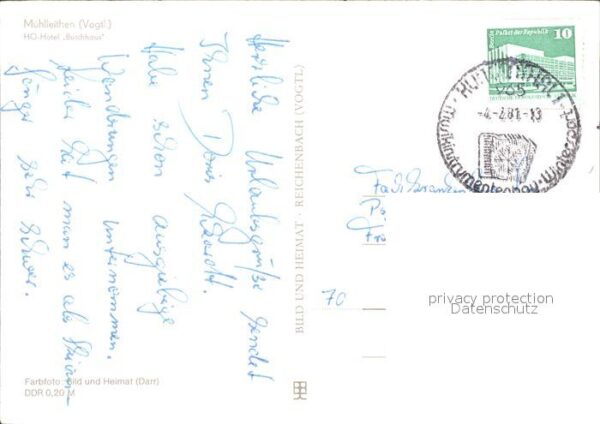 Mühlleithen (Vogtl.)
HO-Hotel „Buschhaus"
Herzliche Urlaubsgrüße sendet
Ihnen Doris
Habe schon ausgiebige
Wanderungen unternommen.
Leider hat man es als
sehr schwer.
BILD UND HEIMAT · REICHENBACH (VOGTL)
Farbfoto: Bild und Heimat (Darr)
DDR 0,20 M
Berlin Palast der Republik
10
DEUTSCHE DEMOKRATISCHE REPUBLIK
-4.-2.81.-13
Musikinstrumentenbau · Wintersport
70
privacy protection
Datenschutz